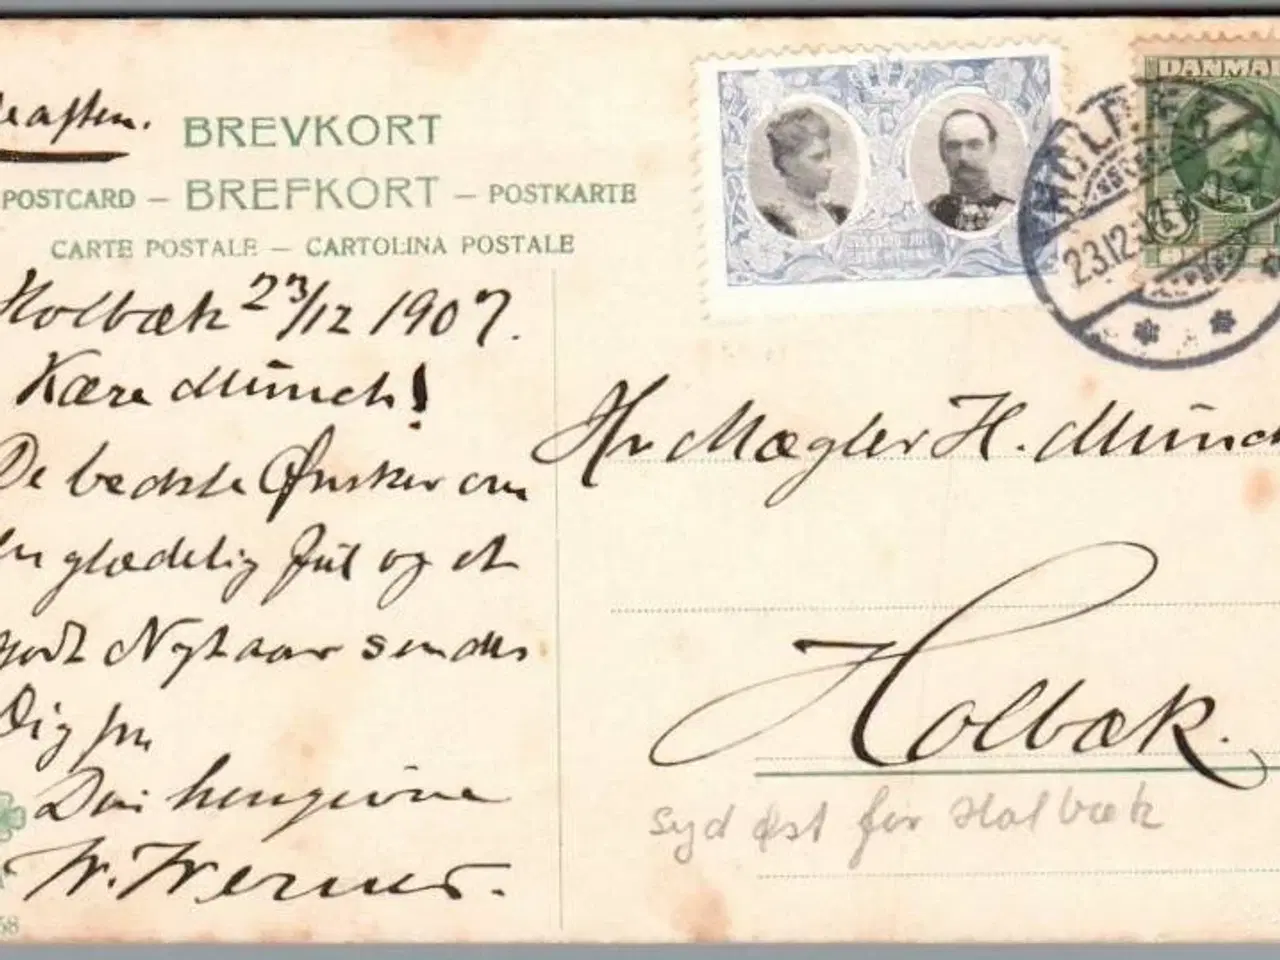 BREVKORT
POSTCARD — BREFKORT — POSTKARTE
CARTE POSTALE — CARTOLINA POSTALE
DANMAR
HOLBÆK
23.12.
Holbæk 23/12 1907.
Kære Münch!
De bedste Ønsker om
en glædelig Jul og et
godt Nytaar sendes
Dig fra
Din hengivne
W. Werner.
58
Hr Mægler H. Münch
Holbæk.
syd øst for Holbæk